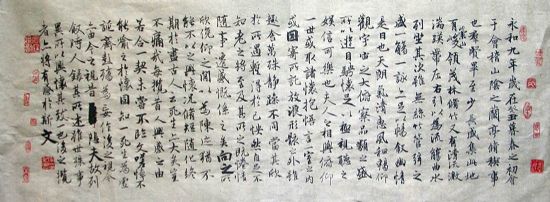 永和九年歲在癸丑暮春之初會
于會稽山陰之蘭亭脩稧事
也羣賢畢至少長咸集此地
有峻領茂林脩竹又有清流激
湍暎帶左右引以為流觴曲水
列坐其次雖無絲竹管弦之
盛一觴一詠亦足以暢叙幽情
是日也天朗氣清惠風和暢仰
觀宇宙之大俯察品類之盛
所以遊目騁懷足以極視聽之
娛信可樂也夫人之相與俯仰
一世或取諸懷抱悟言一室之內
或因寄所託放浪形骸之外雖
趣舍萬殊靜躁不同當其欣
於所遇蹔得於己怏然自足不
知老之將至及其所之既惓情
隨事遷感慨係之矣向之所
欣俛仰之閒以為陳迹猶不
能不以之興懷況脩短隨化終
期於盡古人云死生亦大矣豈
不痛哉每攬昔人興感之由
若合一契未嘗不臨文嗟悼不
能喻之於懷固知一死生為虛
誕齊彭殤為妄作後之視今
亦由今之視昔悲夫故列
叙時人錄其所述雖世殊事
異所以興懷其致一也後之攬
者亦將有感於斯文